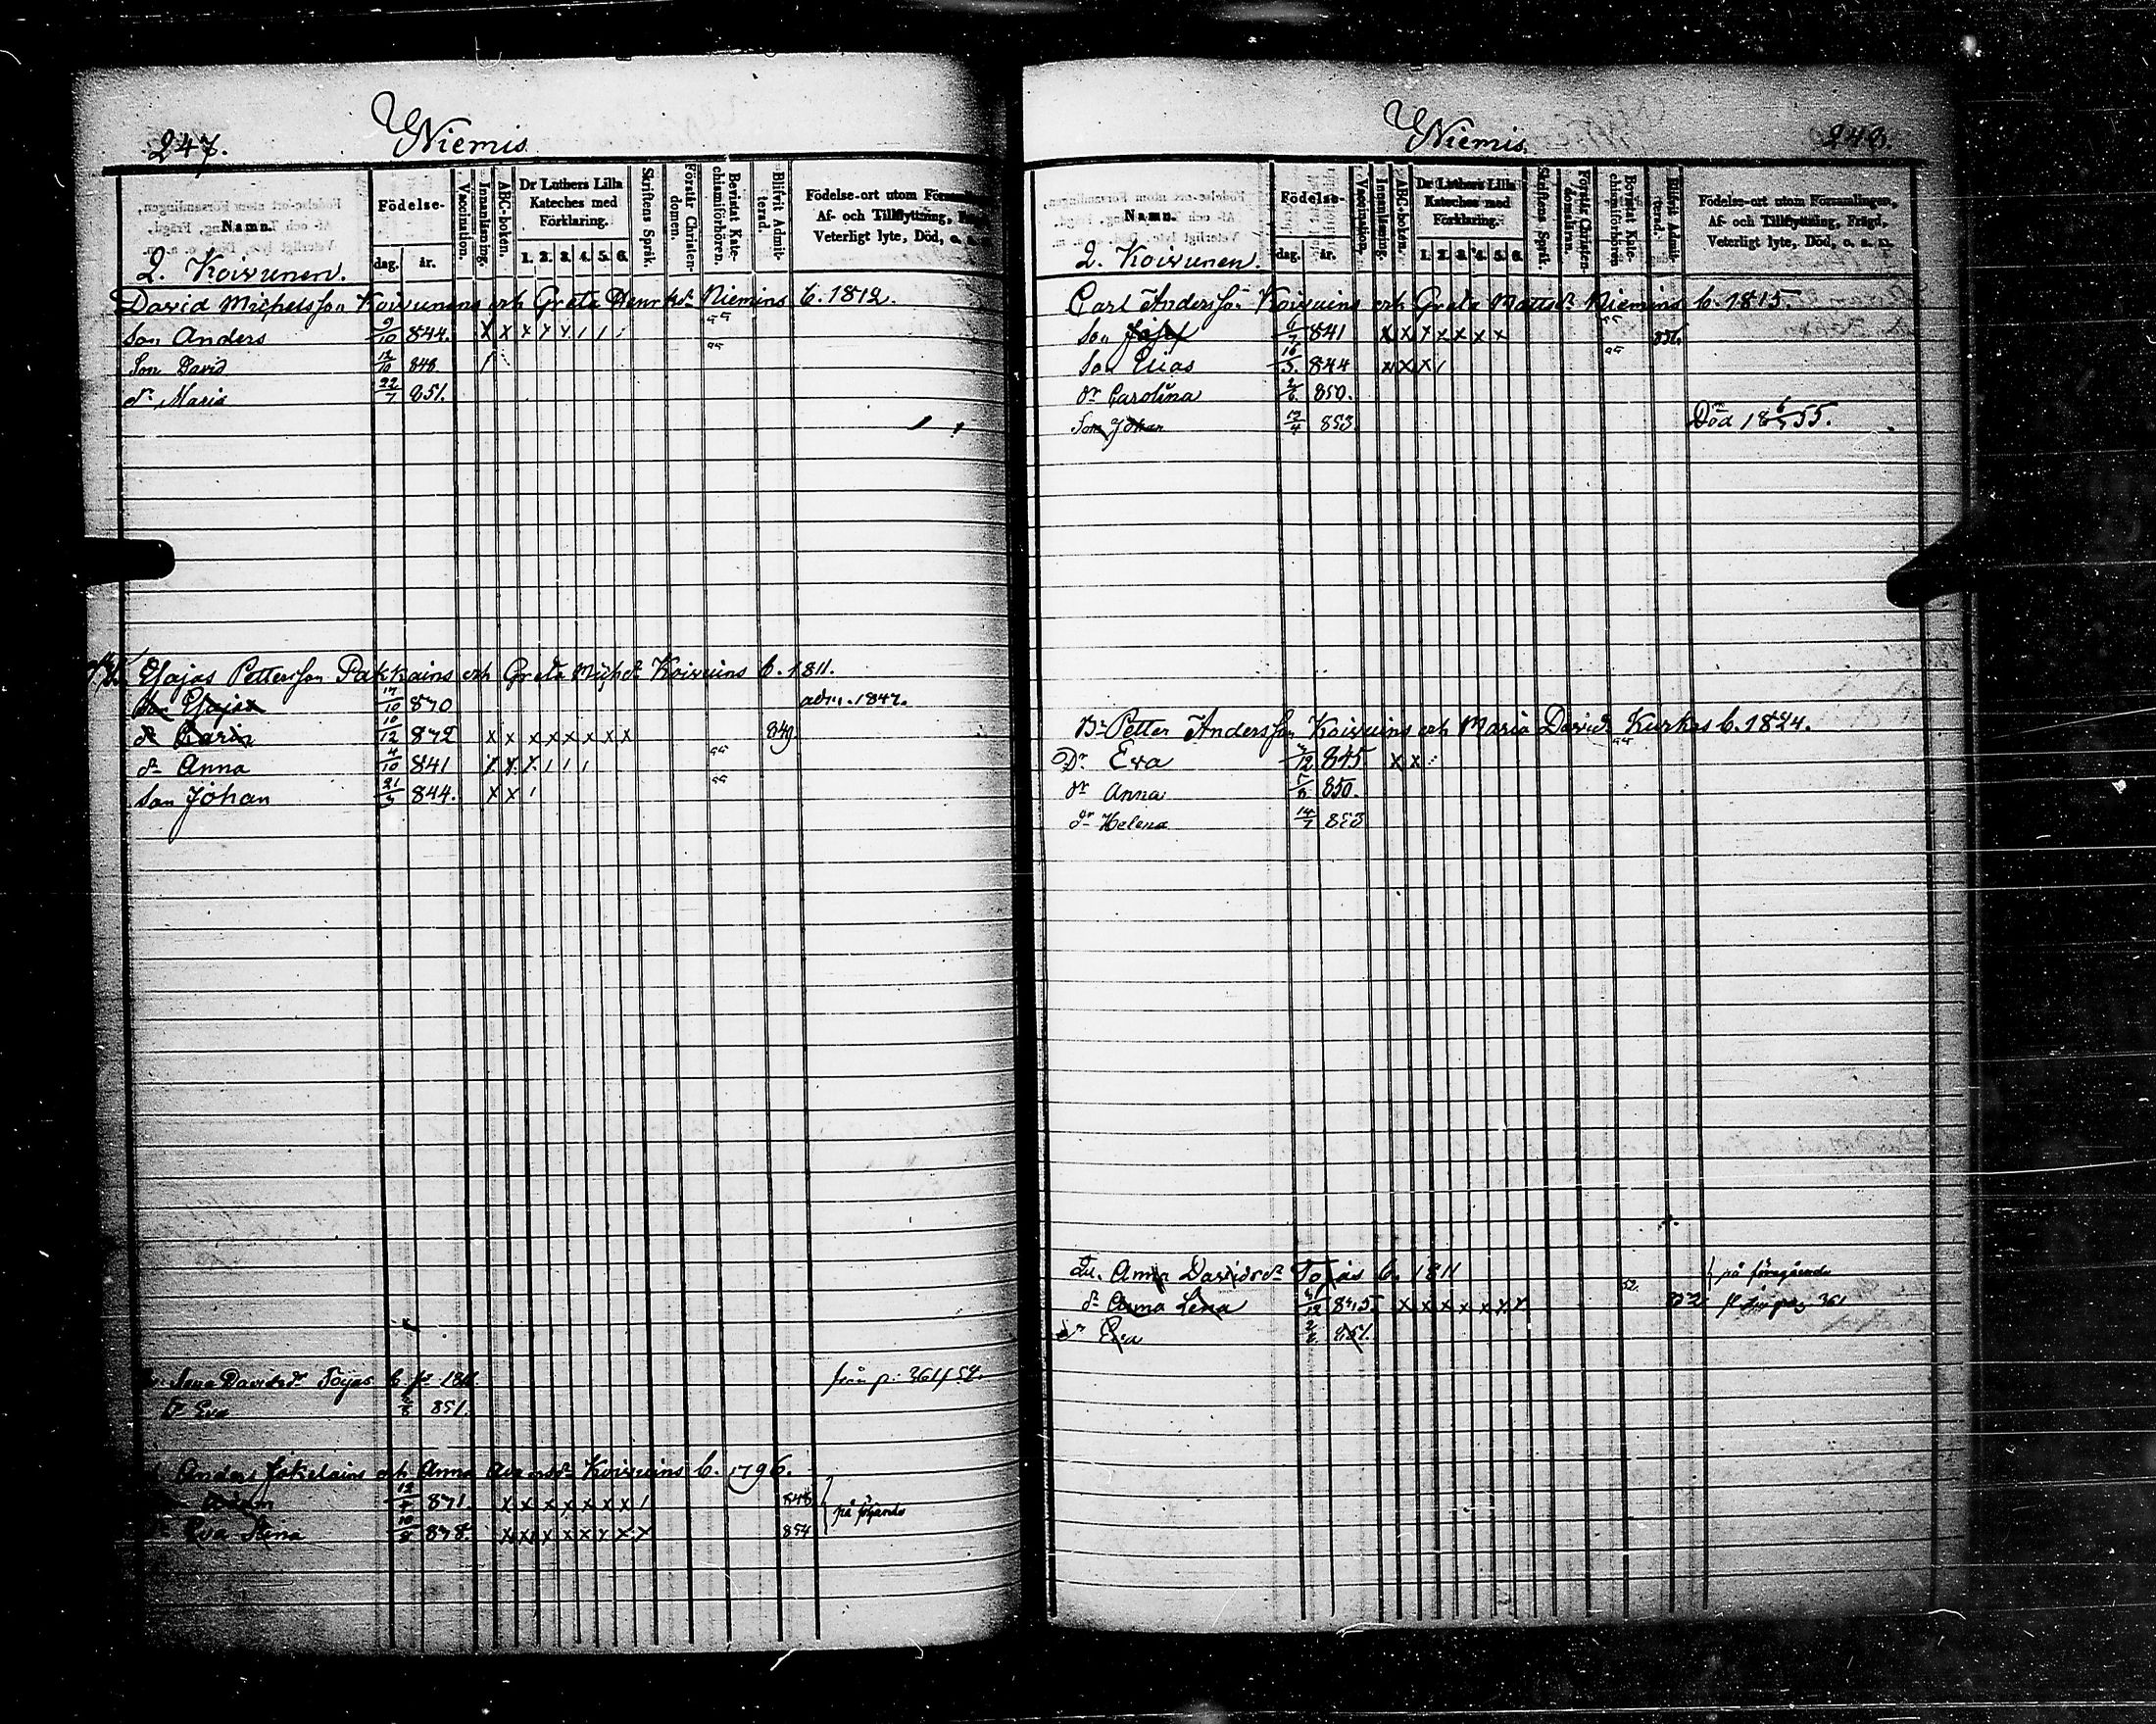 247.
Niemis
Namn.
Födelse-
dag.
år.
Vaccination.
Innanläsning.
ABC-boken.
Dr Luthers Lilla
Kateches med
Förklaring.
1. 2. 3. 4. 5. 6.
Skriftens Språk.
Förstår Christen-
domen.
Bevistat Kate-
chismiförhören.
Blifvit Admit-
terad.
Födelse-ort utom
Af- och Tillflyttning,
Veterligt lyte, Död, o. a.
2. Koivunen.
David Michelsson Koivunens och Greta Niemins b. 1812.
Son Anders 9/10 844. X X X X X / / /
Son David 12/10 848 /
dr Maria 22/7 851.
Esajas Pettersson Pakkains och Greta Michdr Koivuins b. 1811.
Son Esajas 10 adm. 1847.
dr Carin 10/12 x x x x x x x x 849.
dr Anna 4/10 841 X X X / / /
son Johan 21/3 844. X X /
Davidsdr Tojas b
dr Eva 851.
från p. 361
Anders Jokelains och Anna Koivuins b. 1796.
x x x x x x x / 848
Eva Stina x x x x x x x x 854
på följande
Niemis.
Namn.
Födelse-
dag.
år.
Vaccination.
Innanläsning.
ABC-boken.
Dr Luthers Lilla
Kateches med
Förklaring.
1. 2. 3. 4. 5. 6.
Skriftens Språk.
Förstår Christen-
Bevistat Kate-
chismiförhören
Blifvit Admit-
terad.
Födelse-ort utom Församlingen,
Af- och Tillflyttning, Frägd,
Veterligt lyte, Död, o. a. m.
2. Koivunen.
Carl Andersson Koivuins och Greta Mattsdr Niemins b. 1815.
Son 841 x x x x x x x 856.
Son Elias 16/3. 844 x x x /
dr Carolina 850.
Son Johan 12/4 853. Död 18 6/5 55.
Br Petter Andersson Koivuins och Maria Davidr Kurkas b. 1824.
Dr Eva 845 x x
dr Anna 850.
dr Helena 14/7 853
Anna Davidsdr Tojas b. 1811 på föregående
dr Anna Lena 52. x x x x x x x pag 361
dr Eva 851.